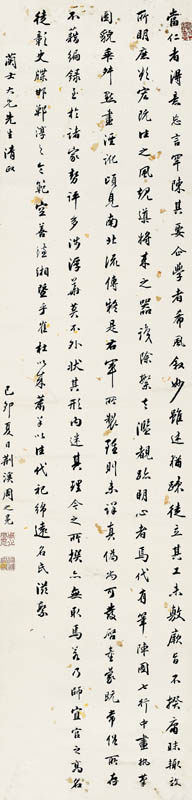 當仁者得意忘言罕陳其要企學者希風叙妙雖述猶疎徒立其工未敷厥旨不揆庸昧輙效
所明庶欲宏既往之風規導將來之器識除繁去濫覩跡明心者焉代有筆陣圖七行中畫執筆
圖貌乖舛點畫湮訛頃見南北流傳疑是右軍所製雖則未詳真偽尚可發啟童蒙既常俗所存
不藉編録至於諸家勢評多涉浮華莫不外狀其形內迷其理今之所撰亦無取焉若乃師宜官之高名
徒彰史牒邯鄲淳之令範空著縑緗暨乎崔杜以來蕭羊以往代祀綿遠名氏滋繁
蘭士大兄先生清政
己卯夏日荆溪周之冕